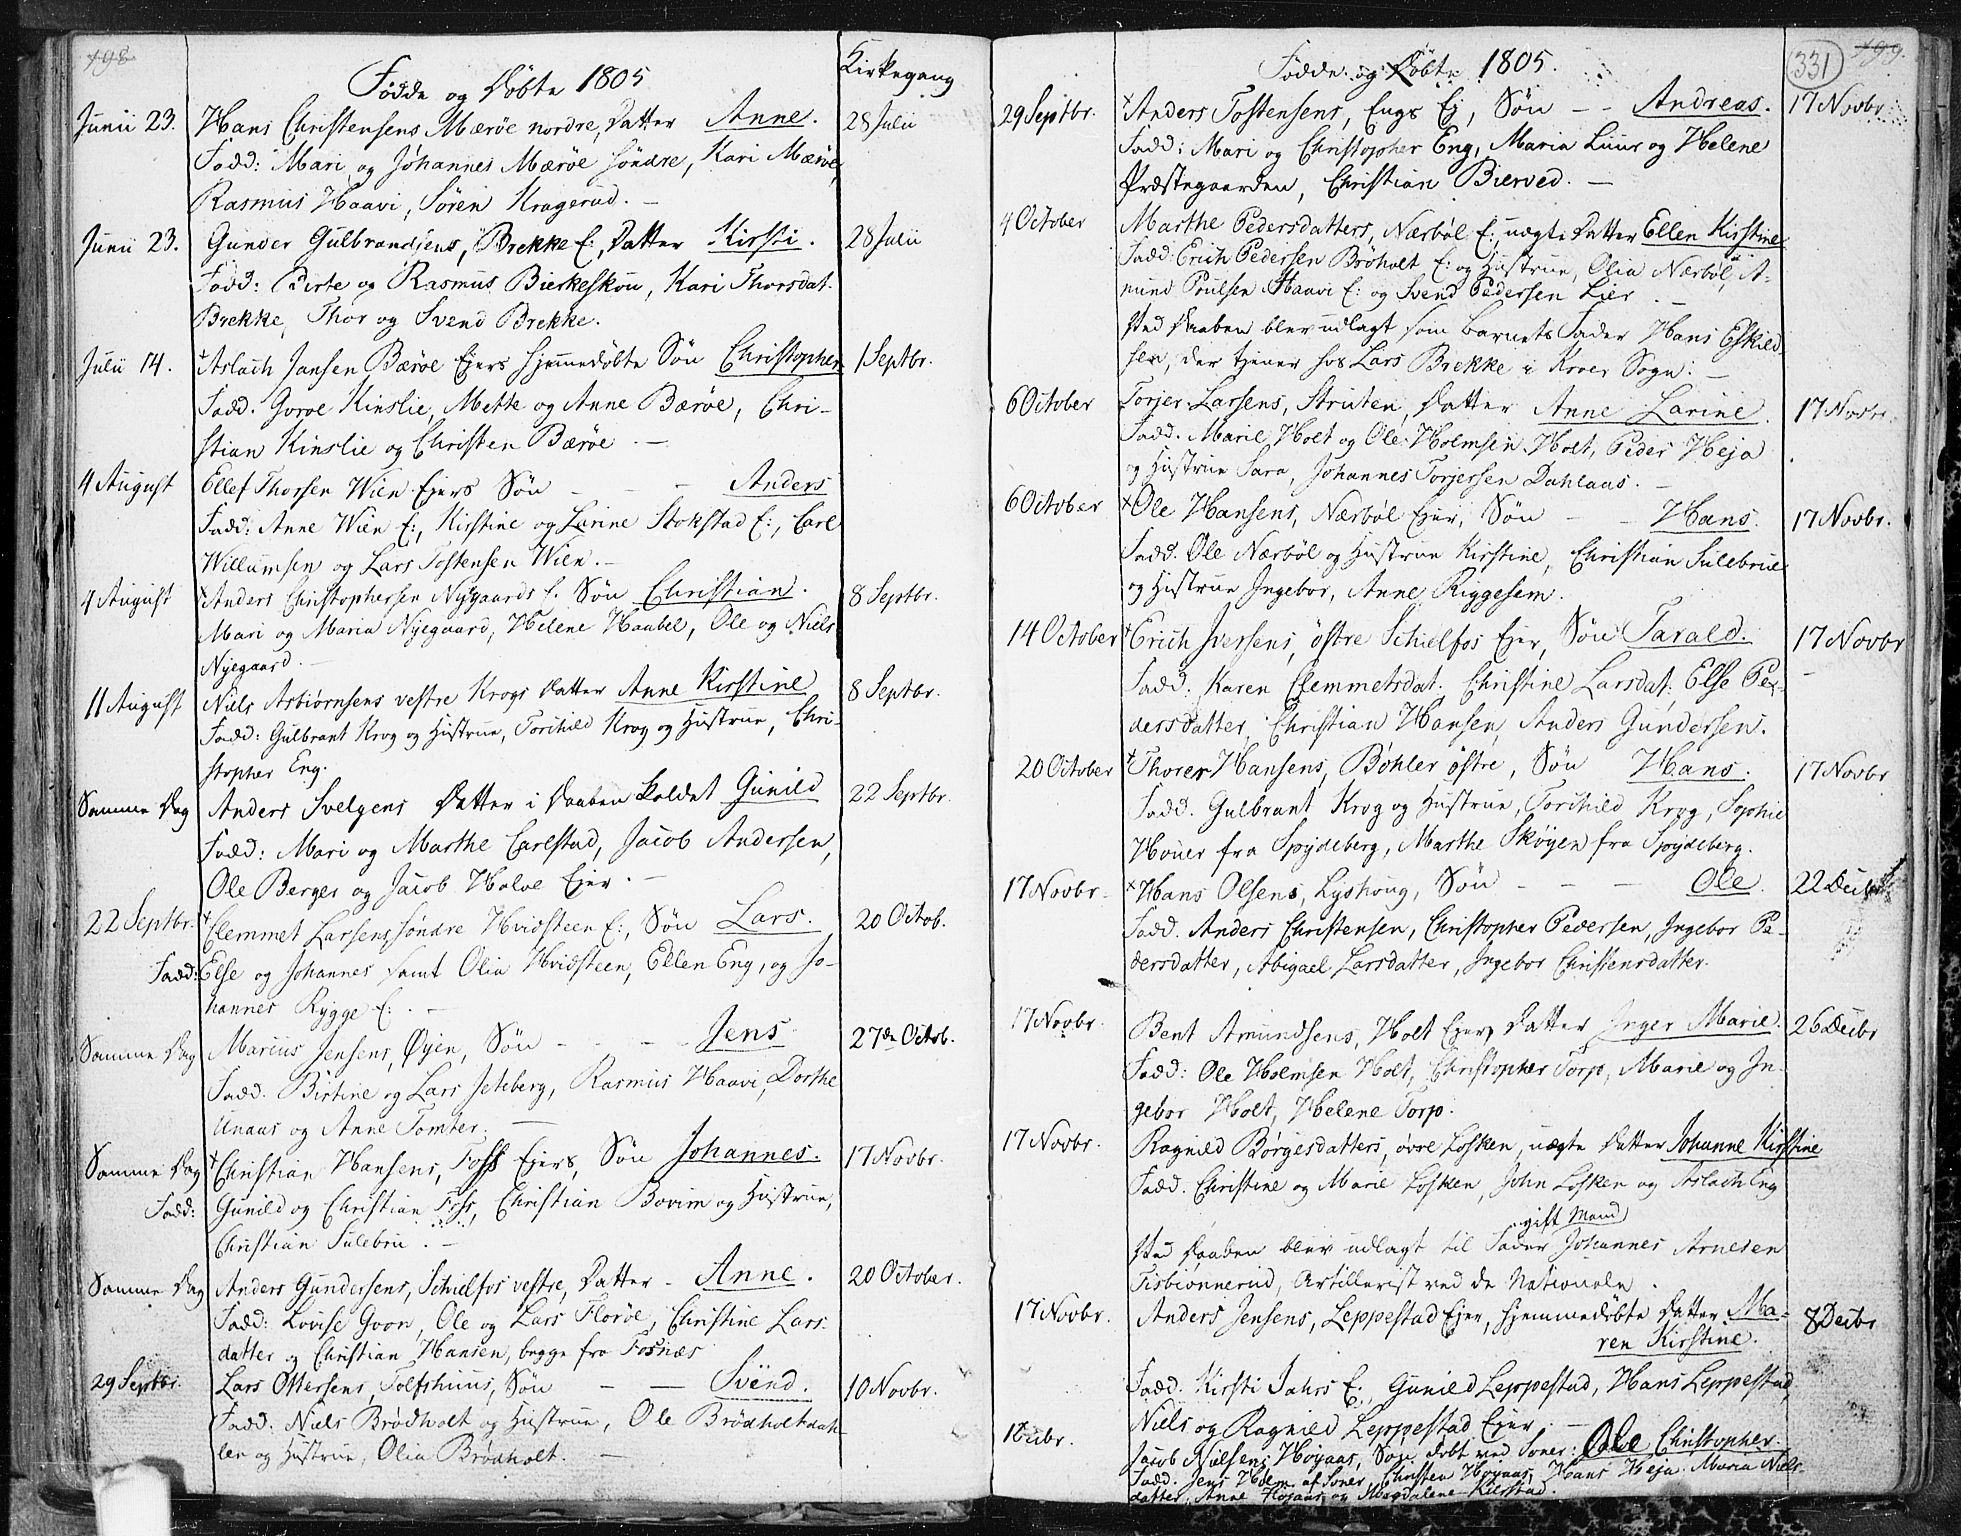 198
Fødde og Døbte 1805
Kirkegang
Junii 23. Hans Christensens Mærøe nordre, Datter Anne. 28 Julii
Fadd: Mari og Johannes Mærøe søndre, Kari Mærøe,
Rasmus Haavi, Søren Kragerud. —
Junii 23. Gunder Gulbrandsens, Brekke E:, Datter Kirsti. 28 Julii
Fadd: Birte og Rasmus Bierkeskou, Kari Thorsdat.
Brekke, Thor og Svend Brekke.
Julii 14. Aslach Jansen Bærøe Ejers hjemmedøbte Søn Christopher 1 Septbr.
Fadd. Goroe Kinslie, Mette og Anne Bærøe, Chri-
stian Kinslie og Christen Bærøe. —
4 August Ellef Thorsen Wien Ejers Søn - - - Anders
Fadd: Anne Wien E:, Kirstine og Larine Stokstad E:, Carl
Willumsen og Lars Tostensen Wien. —
4 August Anders Christophersen Nygaards E. Søn Christian. 8 Septbr.
Mari og Maria Nyegaard, Helene Haabel, Ole og Niels
Nyegaard. —
11 August Niels Asbiørnsens vestre Krogs Datter Anne Kirstine 8 Septbr.
Fadd: Gulbrant Krog og Hustrue, Torchild Krog og Hustrue, Chri-
stopher Eng.
Samme Dag Anders Svelgens Datter i Daaben kaldet Gunild 22 Septbr.
Fadd: Mari og Marthe Carlstad, Jacob Andersen,
Ole Berger og Jacob Holoe Ejer. —
22 Septbr. Clemmet Larsens, søndre Hvidsteen E:, Søn Lars. 20 Octob.
Fadd: Else og Johannes samt Olia Hvidsteen, Ellen Eng, og Jo-
hannes Rygge E:. —
Samme Dag Marius Jensens, Øyen, Søn - - - Jens 27de Octob.
Fadd. Birtine og Lars Jeteberg, Rasmus Haavi, Dorthe
Unaas og Anne Tomter. —
Samme Dag Christian Hansens, Foss Ejers, Søn Johannes. 17 Novbr.
Fadd: Gunild og Christian Foss, Christian Bovim og Hustrue,
Christian Sulebru. —
Samme Dag Anders Gundersens, Schielfos vestre, Datter - Anne. 20 October.
Fadd: Lovise Gvon, Ole og Lars Florøe, Christine Lars
datter og Christian Hansen, begge fra Fosnæs
29 Septbr. Lars Ottersens, Tolfshuus, Søn - — Svend. 10 Novbr.
Fadd: Niels Brødholt og Hustrue, Ole Brødholtdah-
len og Hustrue, Olia Brødholt. —
331 199
Fødde og Døbte 1805.
29 Septbr. Anders Tostensens, Engs Ej, Søn - - Andreas. 17 Novbr.
Fadd: Mari og Christopher Eng, Maria Luur og Helene
Præstegaarden, Christian Bierved. —
4 October Marthe Pedersdatters, Nærbøl E:, uægte Datter Ellen Kirstine
Fadd: Erich Pedersen Brøholt E: og Hustrue, Olia Nærbøl, A-
mund Poulsen Haavi E: og Svend Pedersen Lier. —
Ved Daaben blev udlagt som Barnets Fader Hans Eskild-
sen, der tjener hos Lars Brekke i Kroer Sogn. —
6 October Torjer Larsens, Struten, Datter Anne Larine. 17 Novbr.
Fadd. Marie Holt og Ole Holmsen Holt, Peder Heja
og Hustrue Sara, Johannes Torjersen Dahlaas. —
6 October Ole Hansens, Nærbøl Ejer, Søn - - Hans. 17 Novbr.
Fadd. Ole Nærbøl og Hustrue Kirstine, Christian Sulebrue
og Hustrue Ingebor, Anne Riggesem.
14 October Erich Iversens, østre Schielfos Ejer, Søn Tarald. 17 Novbr
Fadd: Karen Clemmetsdat. Christine Larsdat. Else Pe-
dersdatter, Christian Hansen, Anders Gundersen.
20 October Thorer Hansens, Bøhler østre, Søn Hans. 17 Novbr
Fadd. Gulbrant Krog og Hustrue, Torchild Krog, Sophie
Houer fra Spydeberg, Marthe Skøyen fra Spydeberg.
17 Novbr. Hans Olsens, Lyshoug, Søn - - — Ole. 22 Decbr.
Fadd. Anders Christensen, Christopher Pedersen, Ingebor Pe-
dersdatter, Abigael Larsdatter, Ingebor Christensdatter.
17 Novbr. Bent Amundsens, Holt Ejer, Datter Inger Marie. 26 Decbr
Fadd: Ole Holmsen Holt, Christopher Torp, Marie og In-
gebor Holt, Helene Torp.
17 Novbr. Ragnild Børgesdatters, øvre Losken, uægte Datter Johanne Kirstine
Fadd. Christine og Marie Losken, John Losken og Aslach Eng
gift Mand
Ved Daaben blev udlagt til Fader Johannes Arnesen
Tisbiønnerud, Artillerist ved de Nationale.
17 Novbr. Anders Jensens, Leppestad Ejer, hjemmedøbte Datter Ma- 8 Decbr
ren Kirstine.
Fadd. Kirsti Jahrs E:, Gunild Leppestad, Hans Leppestad,
Niels og Ragnild Leppestad Ejer. —
1 Decbr. Jacob Nielsens Høyaas, Søn, døbt ved Soner: Ole Christopher.
Fadd. Jens Holm af Soner, Christen Høyaas, Hans Heja. Maria Niels-
datter, Anne Høyaas og Magdalene Kiilstad.